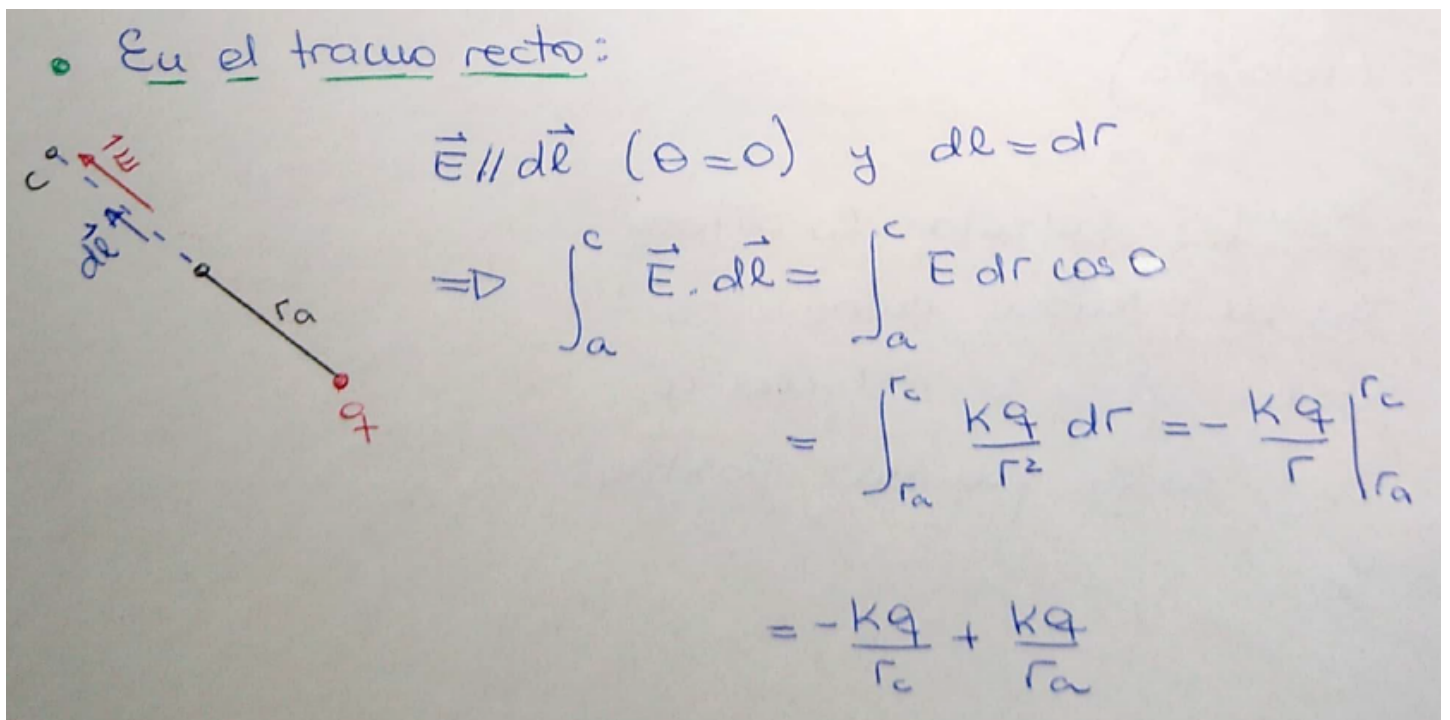 • En el tramo recto:
E⃗ // dl⃗ (θ=0) y dl = dr
c E⃗
dl⃗
ra
q
⇒ ∫_a^c E⃗ . dl⃗ = ∫_a^c E dr cos 0
= ∫_{ra}^{rc} kq/r² dr = - kq/r |_{ra}^{rc}
= - kq/rc + kq/ra